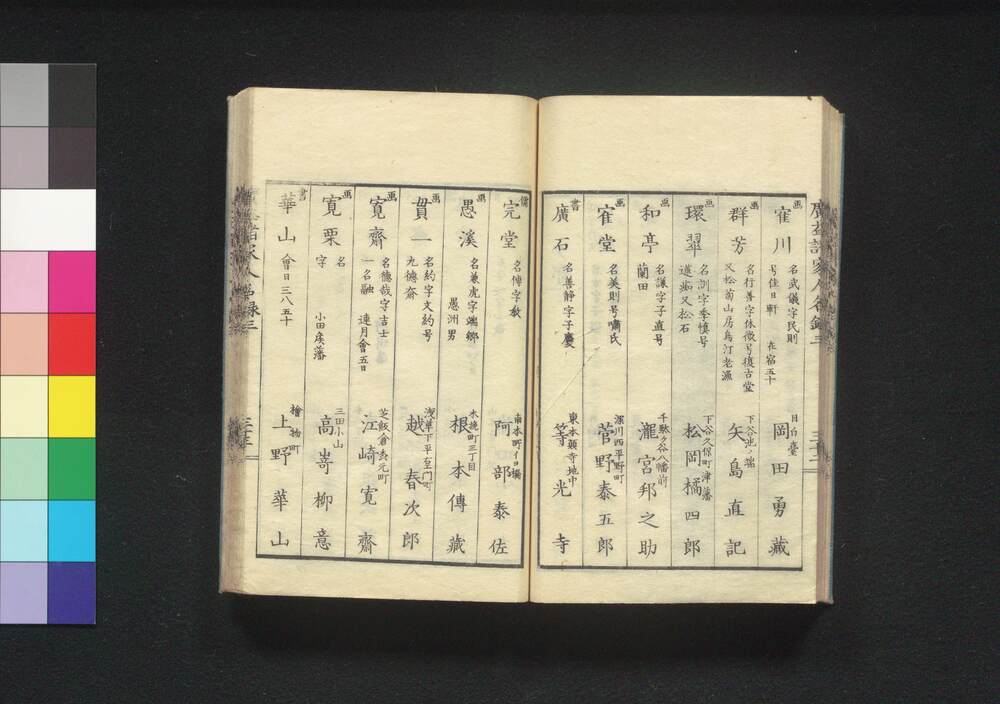 廣益諸家人名録三
画
寉川
名武儀字民則
号佳日軒 在宿五十
目白臺
岡田勇藏
画
群芳
名行善字休徴号復古堂
又松菊山房烏汀老漁
下谷池ノ端
矢島直記
画
環翠
名訓字季慎号
又松石
下谷久保町津藩
松岡橘四郎
画
和亭
名謙字子直号
蘭田
千駄ケ谷八幡前
瀧宮邦之助
画
寉堂
名美則号嘯氏
深川西平野町
菅野泰五郎
書
廣石
名善静字子慶
東本願寺地中
等光寺
儒
完堂
名傳字教
南本町イロハ
阿部泰佐
画
愚溪
名兼虎字端郷
愚洲男
木挽町三丁目
根本傳藏
画
貫一
名約字文約号
九德齋
浅草下平右エ門町
越春次郎
画
寛齋
名德哉字吉士
一名融 連月會五日
芝飯倉赤元町
江崎寛齋
画
寛栗
名
字 小田矦藩
三田小山
高嵜柳意
書
華山
會日三八五十
檜物町
上野華山
廣益諸家人名録三